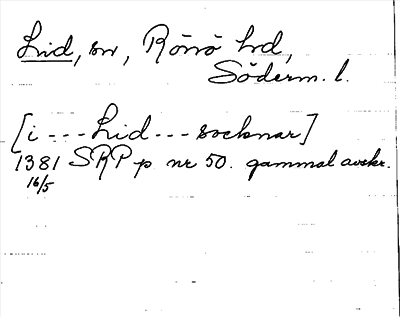 Lid, sn, Rönö hd,
Söderm. l.
[i --- Lid --- socknar]
1381 SRP p nr 50. gammal avskr.
16/5